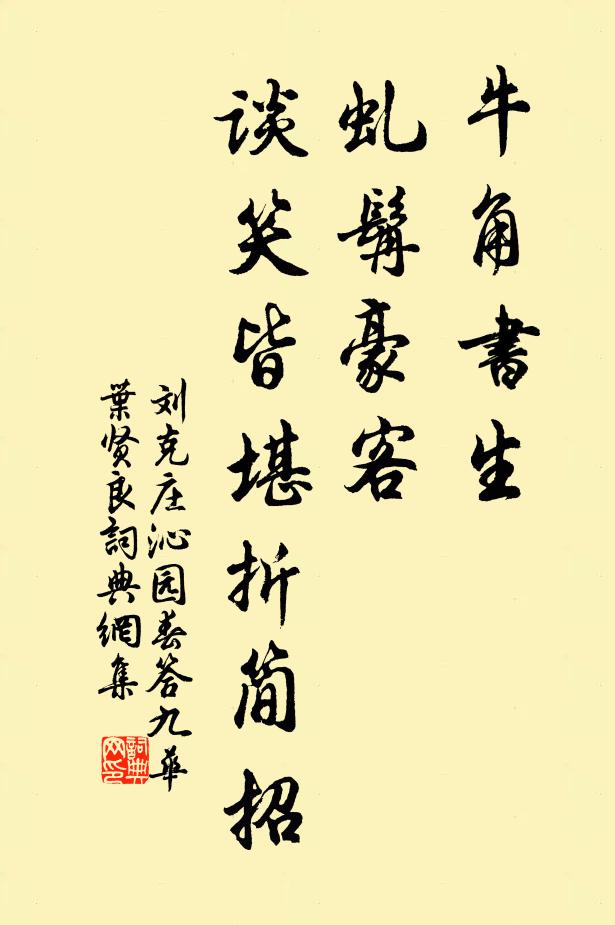 牛角书生
虬髯豪客
谈笑皆堪折简招
刘克庄沁园春答九华
葉贤良詞典網集
詞典网印